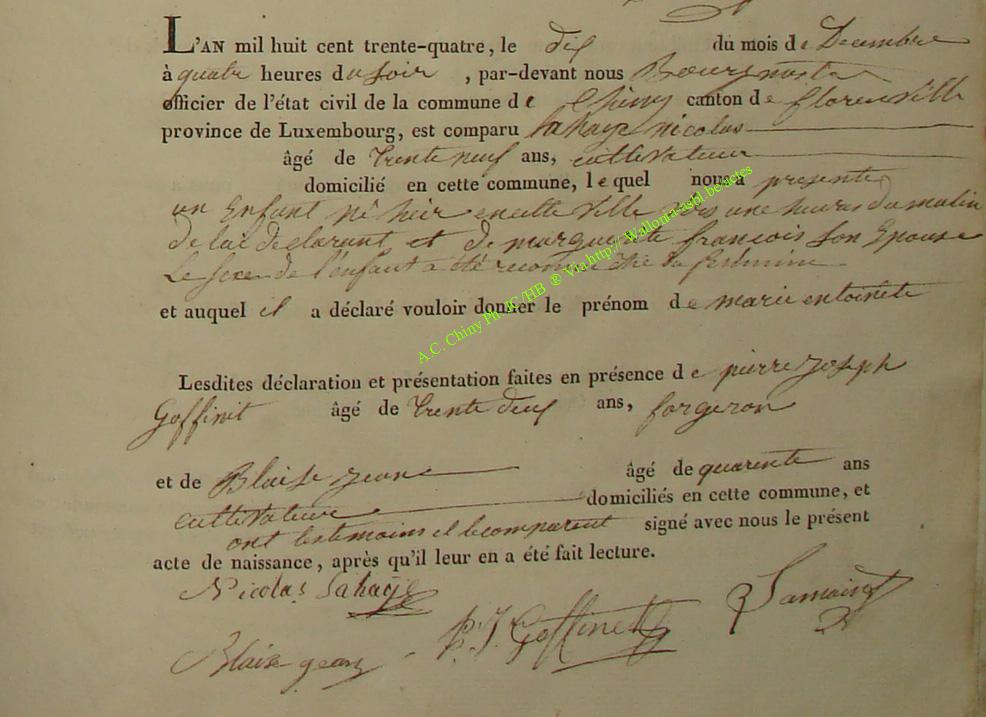 L'AN mil huit cent trente-quatre, le dix du mois de Decembre
à quatre heures du soir , par-devant nous Bourgmestre
officier de l'état civil de la commune de Chiny canton de florenville
province de Luxembourg, est comparu Lahaye nicolas
âgé de trente neuf ans, cultivateur
domicilié en cette commune, lequel nous a presenté
un Enfant né hier en cette ville une heures du matin
de lui declarant et de marguerite francois son Epouse
Le sexe de l'enfant a été reconnu être
et auquel il a déclaré vouloir donner le prénom de marie entoinete
A.C. Chiny Ph JC/HB ® Via http://Wallonia-asbl.be/actes
Lesdites déclaration et présentation faites en présence de pierre Joseph
Goffinet âgé de trente deux ans, forgeron
et de Blaise jean âgé de quarente ans
cultivateur domiciliés en cette commune, et
ont les temoins et le comparent signé avec nous le présent
acte de naissance, après qu'il leur en a été fait lecture.
Nicolas Lahaye
P. J. Goffinet
Blaise jean